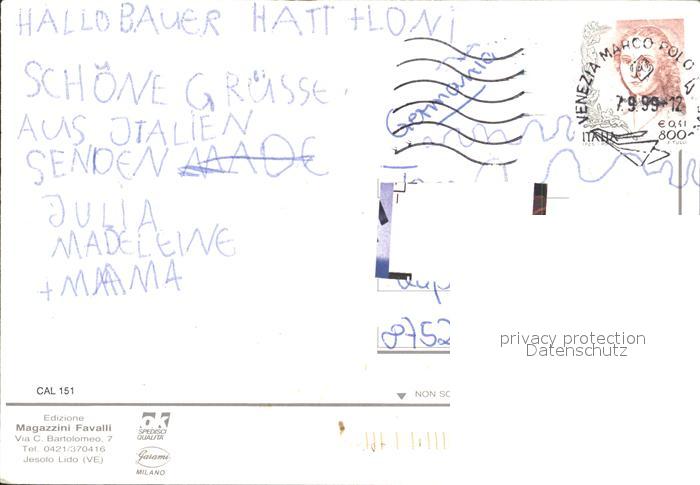 HALLO BAUER HATT + LONI
SCHÖNE GRÜSSE.
AUS ITALIEN
SENDEN MADE
JULIA
MADELEINE
+ MAMA
Germania
VENEZIA MARCO POLO
7.9.99-12
ITALIA
€ 0,41
800
8752
privacy protection
Datenschutz
CAL 151
NON SC
Edizione
Magazzini Favalli
Via C. Bartolomeo, 7
Tel. 0421/370416
Jesolo Lido (VE)
ok
SPEDISCI
QUALITA'
Garami
MILANO